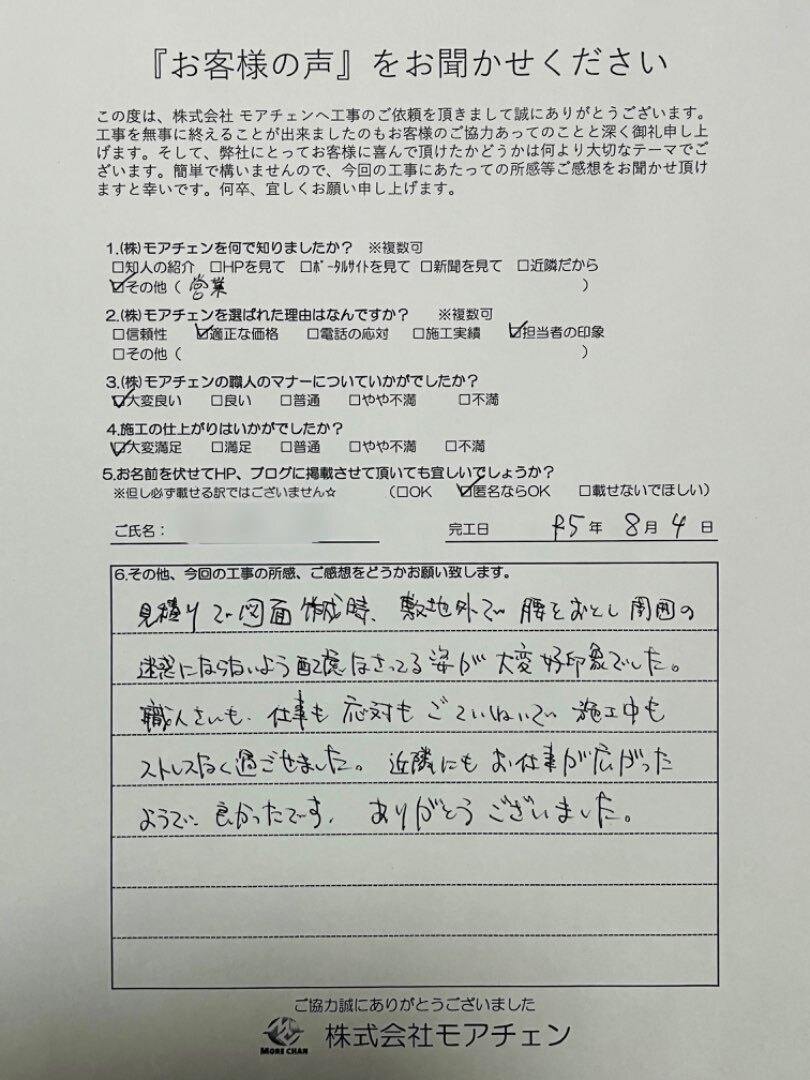 『お客様の声』をお聞かせください
この度は、株式会社 モアチェンへ工事のご依頼を頂きまして誠にありがとうございます。
工事を無事に終えることが出来ましたのもお客様のご協力あってのことと深く御礼申し上
げます。そして、弊社にとってお客様に喜んで頂けたかどうかは何より大切なテーマでご
ざいます。簡単で構いませんので、今回の工事にあたっての所感等ご感想をお聞かせ頂け
ますと幸いです。何卒、宜しくお願い申し上げます。
1.(株)モアチェンを何で知りましたか？ ※複数可
□知人の紹介 □HPを見て □ﾎﾟｰﾀﾙｻｲﾄを見て □新聞を見て □近隣だから
☑その他（ 営業 ）
2.(株)モアチェンを選ばれた理由はなんですか？ ※複数可
□信頼性 ☑適正な価格 □電話の応対 □施工実績 ☑担当者の印象
□その他（ ）
3.(株)モアチェンの職人のマナーについていかがでしたか？
☑大変良い □良い □普通 □やや不満 □不満
4.施工の仕上がりはいかがでしたか？
☑大変満足 □満足 □普通 □やや不満 □不満
5.お名前を伏せてHP、ブログに掲載させて頂いても宜しいでしょうか？
※但し必ず載せる訳ではございません☆ （□OK ☑匿名ならOK □載せないでほしい）
ご氏名： 完工日 R5年 8月 4日
6.その他、今回の工事の所感、ご感想をどうかお願い致します。
見積りで図面作成時、敷地外で腰をおとし周囲の
迷惑にならないよう配慮なさってる姿が大変好印象でした。
職人さいも、仕事も応対もごていねいで施工中も
ストレスなく過ごせました。近隣にもお仕事が広がった
ようで良かったです。ありがとうございました。
ご協力誠にありがとうございました
MORE CHAN 株式会社モアチェン